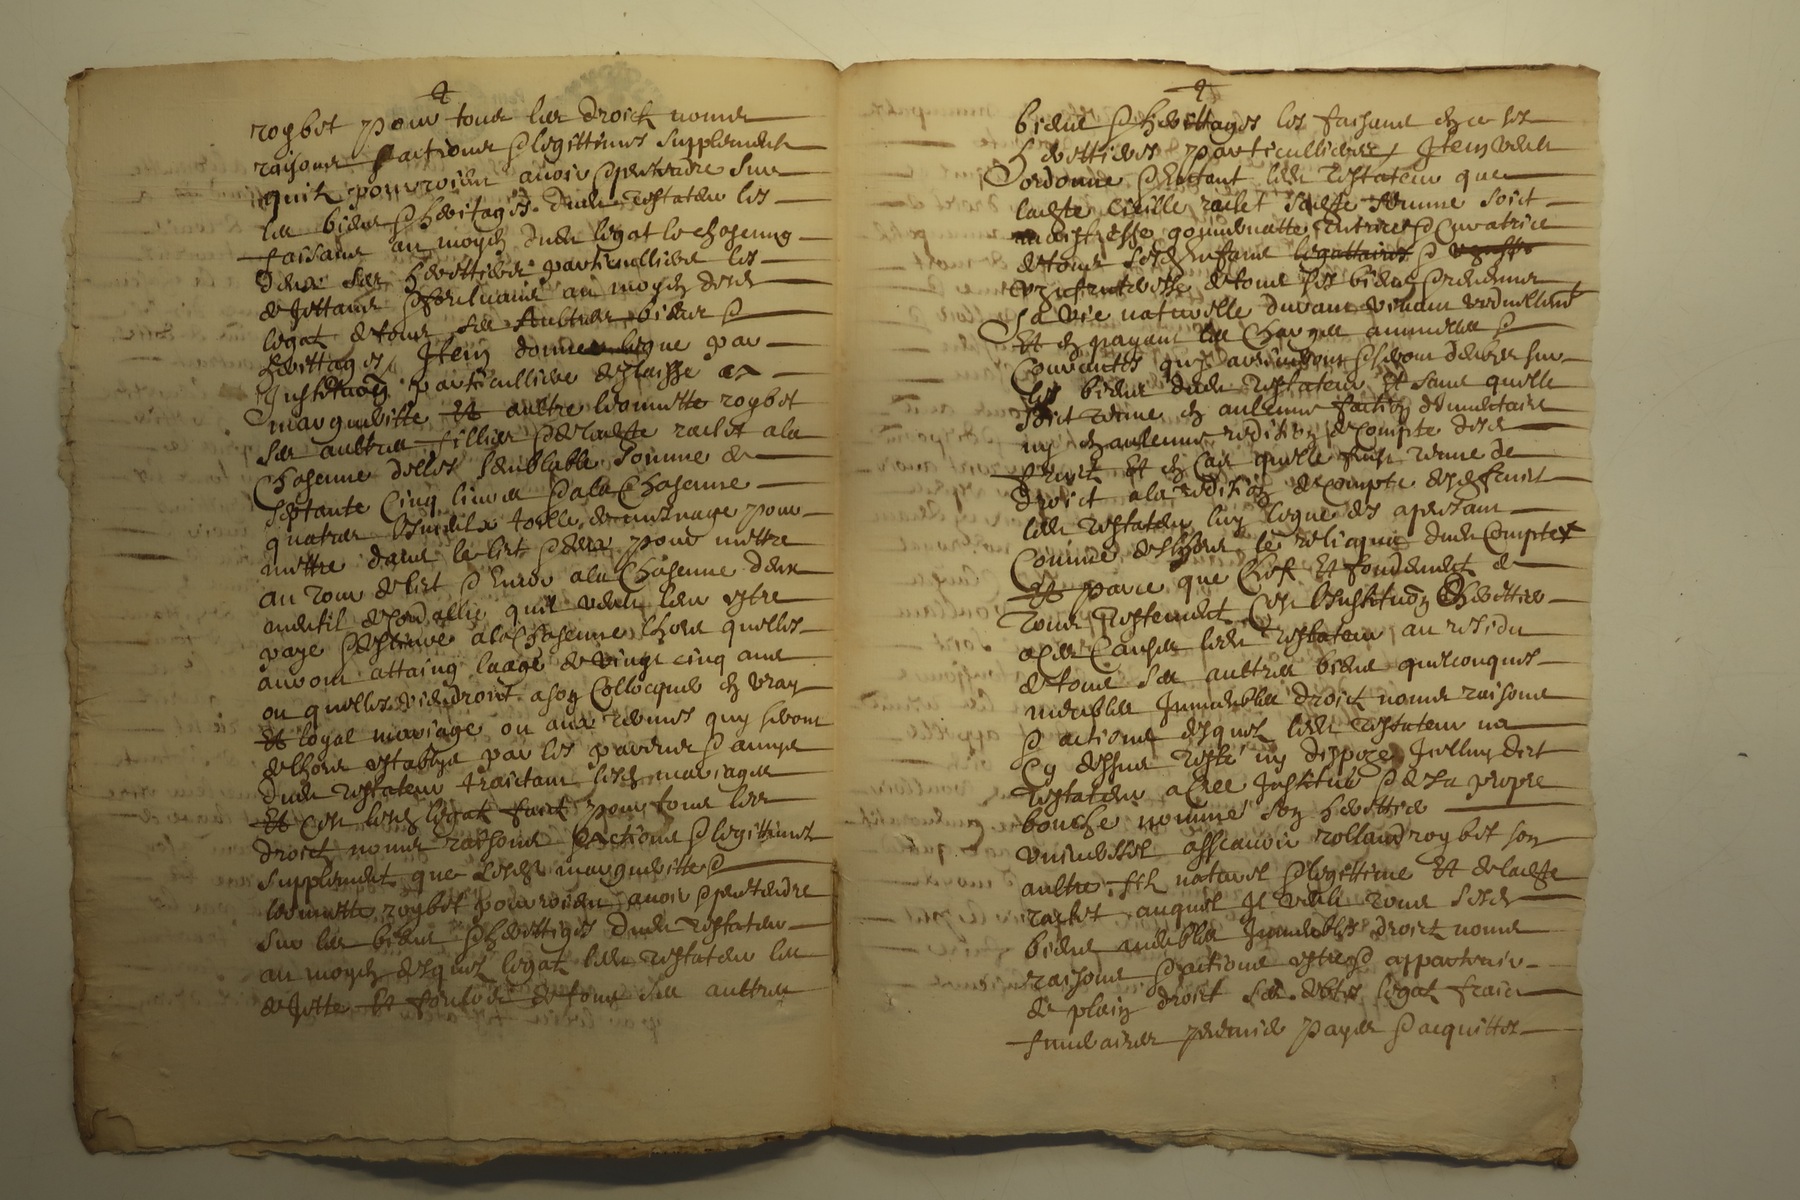 roybet pour tous les droictz noms
raisons actions & legittimes supplements
quilz pourroient avoir & pretendre sur
les biens & heritages dudit testateur les
faisant au moyen dudit legat le chascung
deux ses herittiers particulliers les
dejettant & forcluant au moyen desd
legat de tous ses aultres biens &
herittages Item donne legue par
Institution particulliere delaisse a
margueritte Et aultre leonnette roybet
ses aultres filles & de ladte rachet a la
Chascune delles semblable somme de
septante Cinq livres & a la Chascune
quatre linceulx toille de mesnage pour
mettre dans le lict & deux pour mettre
au tour de lict & encor a la Chascune deux
quil veult leur estre
paye & deslivre a la Chascune lhors quelles
auront attaing laage de vingt cinq ans
ou quelles viendront a soy Collocquer en vray
Et loyal mariage ou aux termes quy seront
delhors establys par les parents & amys
dudit testateur traictant lesd mariages
Et Ces lesd legat faict pour tous les
droict noms raisons & actions & legittimes
supplement que lesd marguerite &
leonnette roybet pourroient avoir & pretendre
sur les biens & herittages dudit testateur
au moyen desquelz legat ledit testateur les
dejette Et forclos de tous ses aultres
biens & herittages les faisant en ce ses
herittieres particullieres Item veult
ordonne & entant ledit testateur que
ladte rachet sadte femme soit
maistresse gouvernatte tutrice & Curatrice
de tous sesd enfans &
Uzufruictresse de tous ses biens &
sa vie naturelle durant vivant viduellement
Et en payant les Charges annuelles &
Courantes quy arriveront & seront deubes sur
les biens dudit testateur Et sans quelle
soit tenue en aulcune faction dinventaire
ny en aulcune reddition de compte desd
fruict Et en Cas quelle fust tenue de
droict a la reddition de compte desd fruict
ledit testateur luy legue des apresant
Comme deslhors le reliqua dudit Compte
Et parce que Chef Et fondement de
tout testement Cest Institution dherittier
a Ces Causes ledit testateur au residu
de tous ses aultres biens quelconques
meubles Immeubles droict noms raisons
& actions desquelz ledit testateur na
Cy dessus teste ny dispoze Icelluy dict
testateur a Cree Institue & de sa propre
bouche nomme son herittier
universel assavoir rolland roybet son
aultre filz naturel & legittime Et de ladte
rachet auquel Il veult tous sesd
biens meubles Immeubles droict noms
raisons & actions estre & appartenir
de plain droict ses debtes legat frais
funeraires premier payes & acquittes